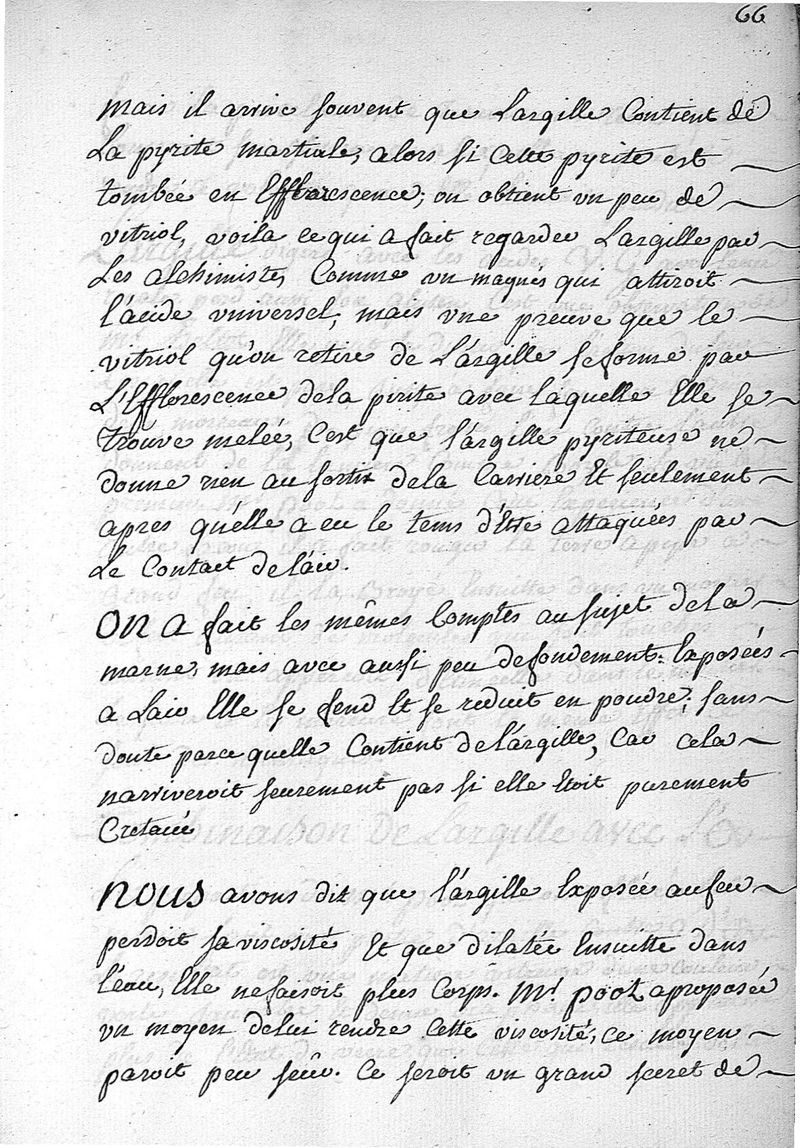 66
Mais il arrive souvent que Largille Contient de
La pyrite martiale, alors si Cette pyrite est
tombée en Efflorescence; on obtient un peu de
vitriol, voila ce qui a fait regarder Largille par
Les alchimistes Comme un magnés qui attiroit
l'acide vniversel, mais vne preuve que le
vitriol qu'on retire de L'argille se forme par
L'Efflorescence de la pirite avec laquelle Elle se
trouve melée, C'est que l'argille pyriteuse ne
donne rien au sortir de la Carriere Et seulement
apres qu'elle a eu le tems d'Etre attaquées par
Le Contact de l'air.
ON A fait les mêmes Comptes au sujet de la
marne, mais avec aussi peu de fondement. Exposées
a Lair Elle se fend Et se reduit en poudre, sans
doute parce quelle Contient de l'argille, Car cela
narriveroit seurement pas si elle Etoit purement
Cretacée
NOUS avons dit que l'argille Exposée au feu
perdoit sa viscosité Et que dilatée Ensuitte dans
l'eau, Elle ne faisoit plus Corps. Mr. poot a proposée
vn moyen de lui rendre Cette viscosité, ce moyen
paroit peu seur. Ce seroit un grand secret de